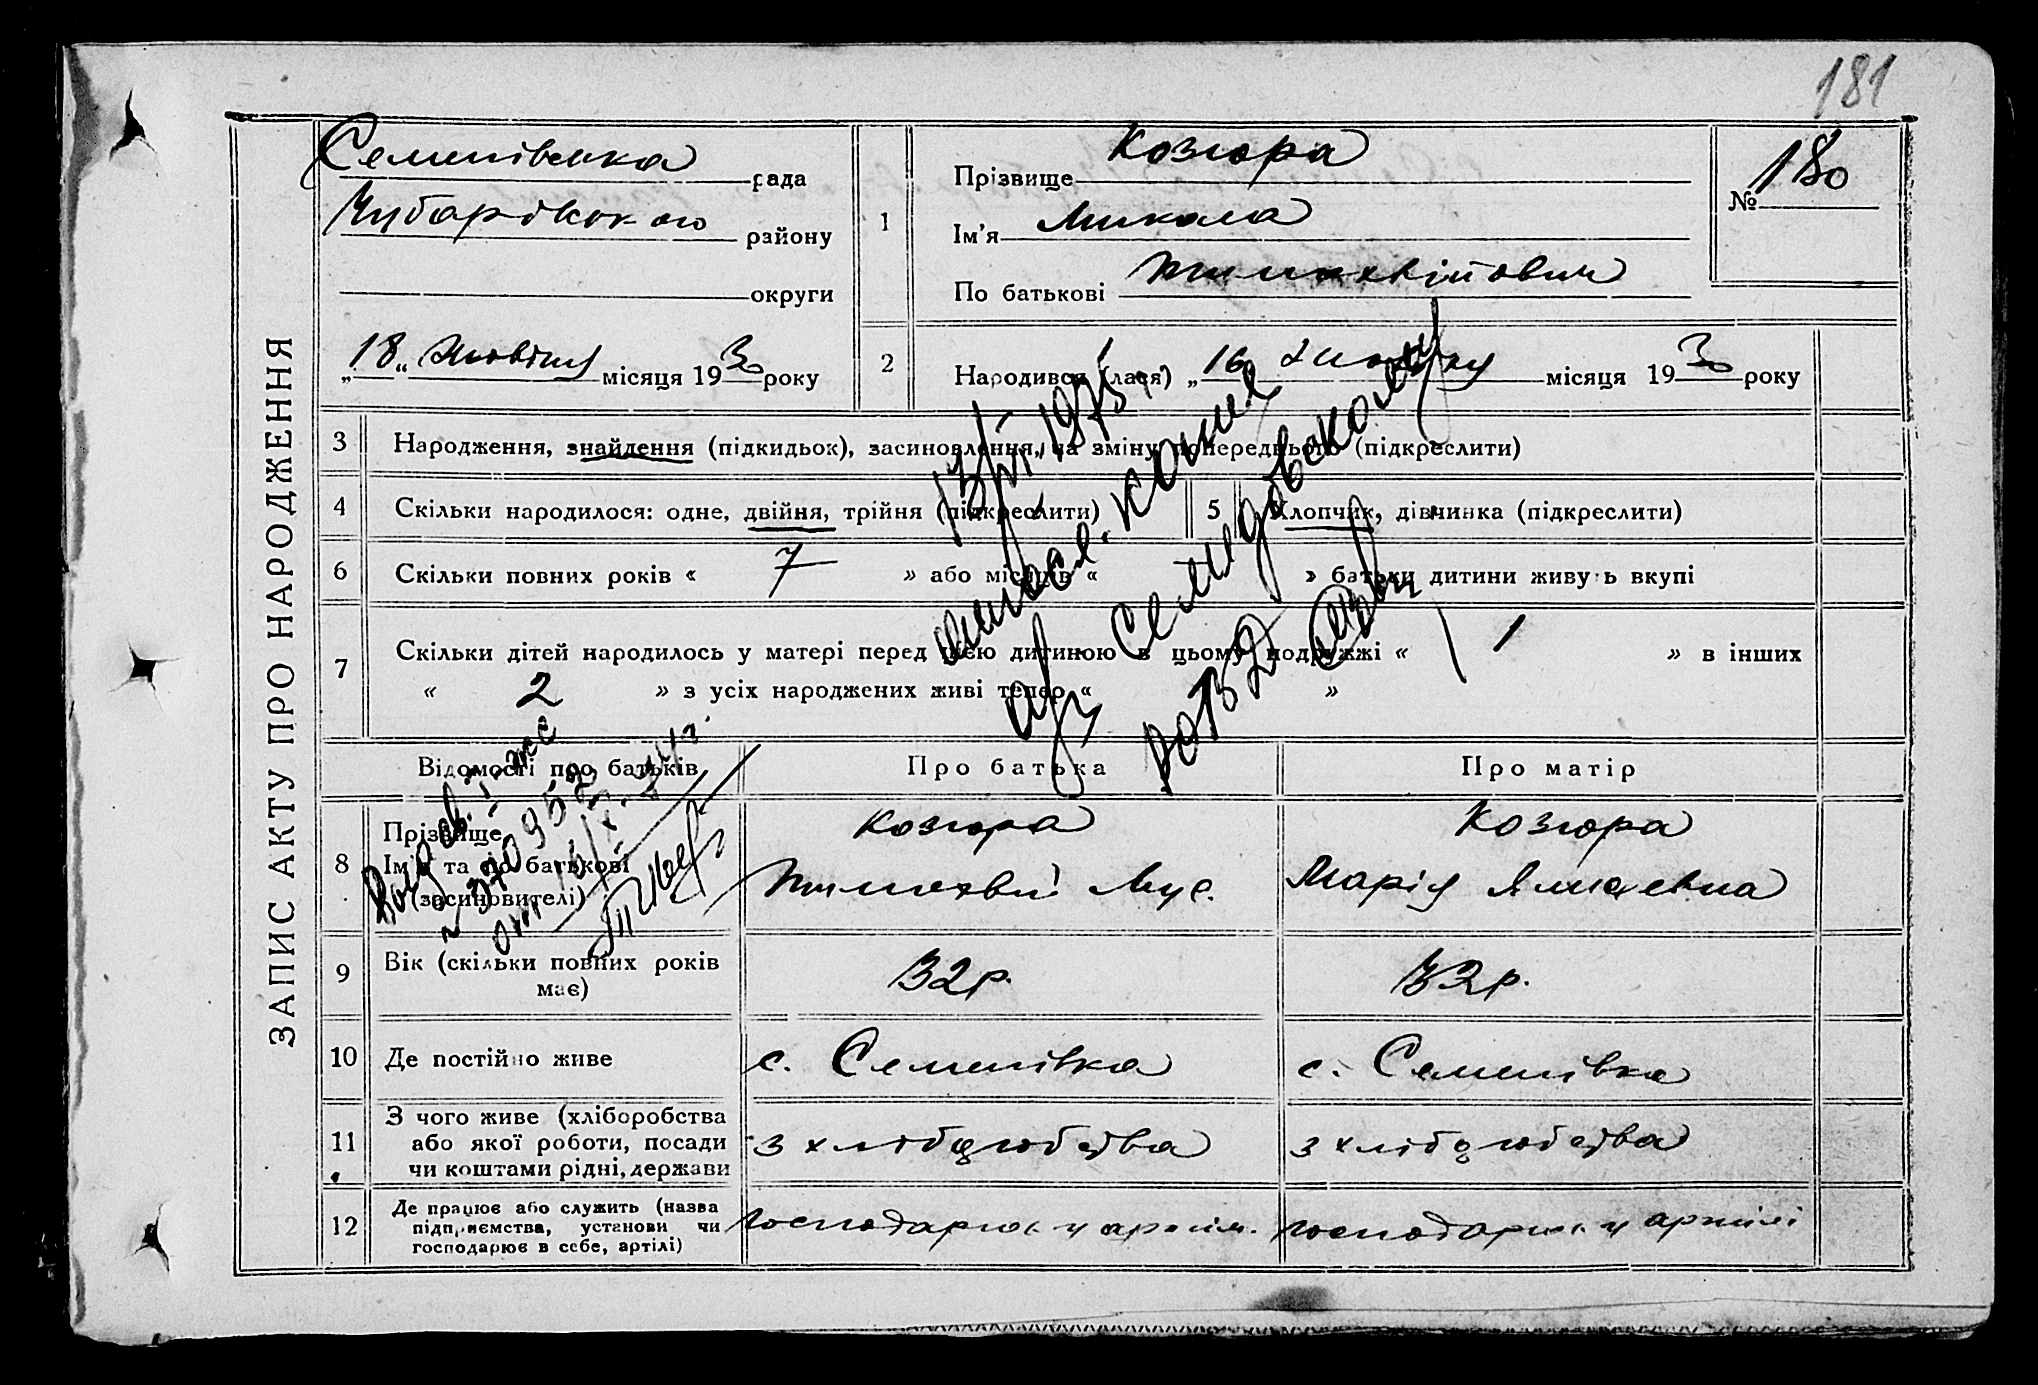 181
Семенівська рада
Чубарівського району
округи
„18“ жовтня місяця 1930 року
1
Прізвище Козюра
Ім'я Микола
По батькові Тимохвійович
№ 180
2
Народився (лася) „16 жовтня місяця 1930 року
ЗАПИС АКТУ ПРО НАРОДЖЕННЯ
3 Народження, знайдення (підкидьок), засиновлення, на зміну попереднього (підкреслити)
4 Скільки народилося: одне, двійня, трійня (підкреслити)
5 Хлопчик, дівчинка (підкреслити)
6 Скільки повних років « 7 » або місяців « » батьки дитини живуть вкупі
7 Скільки дітей народилось у матері перед цією дитиною в цьому подружжі « 1 » в інших
« 2 » з усіх народжених живі тепер « »
13/VI 1975 г.
копия
Семидовскому
Відомості про батьків
Про батька
Про матір
8 Прізвище
Ім'я та по батькові
(засиновителі)
Козюра
Тимохвій Мус.
Козюра
Марія
9 Вік (скільки повних років має)
32р.
32р.
10 Де постійно живе
с. Семенівка
с. Семенівка
11 З чого живе (хліборобства
або якої роботи, посади
чи коштами рідні, держави
з хліборобства
з хліборобства
12 Де працює або служить (назва
підприємства, установи чи
господарює в себе, артілі)
господарює у артілі
господарює у артілі